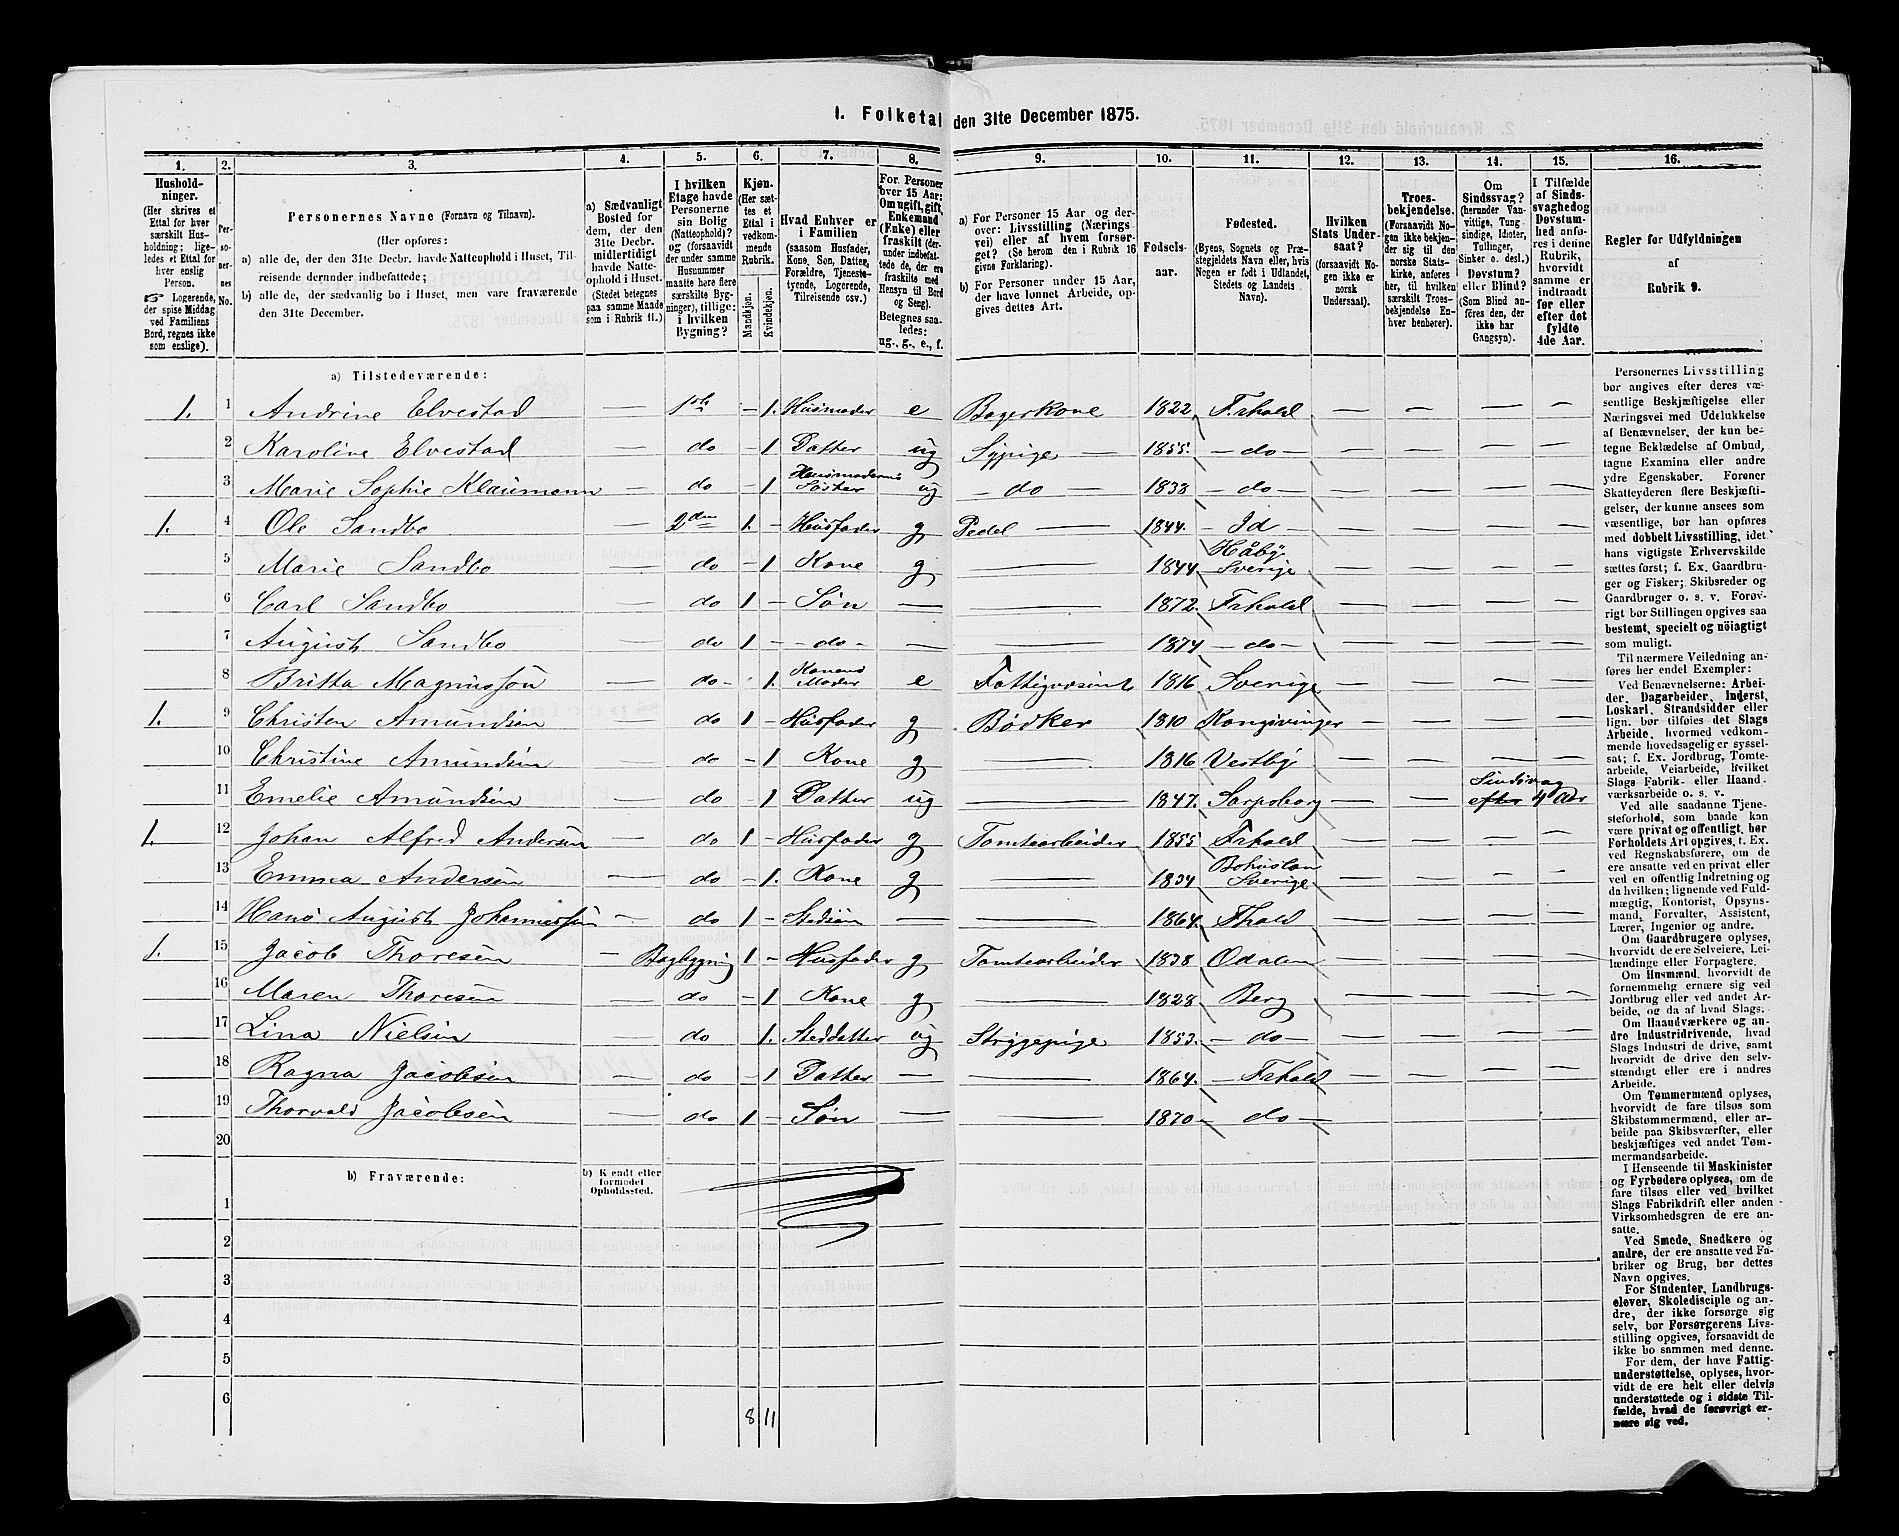 1. Folketal den 31te December 1875.
1. 2. 3. 4. 5. 6. 7. 8. 9. 10. 11. 12. 13. 14. 15. 16.
Husholdninger.
(Her skrives et Ettal for hver særskilt Husholdning; ligeledes et Ettal for hver enslig Person.
☞ Logerende, der spise Middag ved Familiens Bord, regnes ikke som enslige).
Personernes No.
Personernes Navne (Fornavn og Tilnavn).
(Her opføres:
a) alle de, der den 31te Decbr. havde Natteophold i Huset, Tilreisende derunder indbefattede;
b) alle de, der sædvanlig bo i Huset, men vare fraværende den 31te December.
a) Sædvanligt Bosted for dem, der den 31te Decbr. midlertidigt havde Natteophold i Huset. (Stedet betegnes paa samme Maade som i Rubrik 11.)
I hvilken Etage havde Personerne sin Bolig (Natteophold)? og (forsaavidt der under samme Husnummer maatte høre flere særskilte Bygninger), tillige: i hvilken Bygning?
Kjøn. (Her sættes et Ettal i vedkommende Rubrik.
Mandkjøn.
Kvindekjøn.
Hvad Enhver er i Familien
(saasom Husfader, Kone, Søn, Datter, Forældre, Tjenestetyende, Logerende, Tilreisende osv.)
For Personer over 15 Aar: Om ugift, gift, Enkemand (Enke) eller fraskilt (derunder indbefattede de, der ere fraskilte med Hensyn til Bord og Seng). Betegnes saaledes: ug., g., e., f.
a) For Personer 15 Aar og derover: Livsstilling (Næringsvei) eller af hvem forsørget? (Se herom den i Rubrik 16 givne Forklaring).
b) For Personer under 15 Aar, der have lønnet Arbeide, opgives dettes Art.
Fødselsaar.
Fødested.
(Byens, Sognets og Præstegjeldets Navn eller, hvis Nogen er født i Udlandet, Stedets og Landets Navn).
Hvilken Stats Undersaat?
(forsaavidt Nogen ikke er norsk Undersaat).
Troesbekjendelse.
(Forsaavidt Nogen ikke bekjender sig til den norske Statskirke, anføres her, til hvilken særskilt Troesbekjendelse Enhver henhører).
Om Sindssvag? (herunder Vanvittige, Tungsindige, Idioter, Tullinger, Sinker o. desl.) Døvstum? eller Blind? (Som Blind anføres den, der ikke har Gangsyn).
I Tilfælde af Sindssvaghed og Døvstumhed anføres i denne Rubrik, hvorvidt samme er indtraadt før eller efter det fyldte 4de Aar.
Regler for Udfyldningen af Rubrik 9.
a) Tilstedeværende:
1. 1 Andrine Elvestad — 1ste — 1. Husmoder e Bagerkone 1822 Frhald — — — —
2 Karoline Elvestad — do — 1 Datter ug Sypige — 1855. — do — — — — —
3 Marie Sophie Klaumann — do — 1 Husmoderens Søster ug — do — 1838 — do — — — — —
1. 4 Ole Sandbo — 2den 1. — Husfader g Pedel — 1844. — Id — — — — —
5 Marie Sandbo — do — 1 Kone g — 1844 Håby Sverige — — — —
6 Carl Sandbo — do 1 — Søn — — 1872. Frhald — — — —
7 August Sandbo — do 1 — — do — — — 1874 — do — — — — —
8 Britta Magnusson — do — 1. Konens Moder e Fattigvæsenet 1816 Sverige — — — —
1. 9 Christen Amundsen — do 1 — Husfader g Bødker 1810 Kongsvinger — — — —
10 Christine Amundsen — do — 1 Kone g — 1816 Vestby — — — —
11 Emelie Amundsen — do — 1 Datter ug — 1847. Sarpsborg — — Sindsvag efter 4d Aar
1. 12 Johan Alfred Andersen — do 1 — Husfader g Tomtearbeider 1855 Frhald — — — —
13 Emma Andersen — do — 1. Kone g — 1834 Bohuslän Sverige — — — —
14 Hans August Johannessen — do 1 — Stedsøn — — 1864. Fhald — — — —
1. 15 Jacob Thoresen — Bagbygning 1 — Husfader g Tomtearbeider 1838 Odalen — — — —
16 Maren Thoresen — do — 1 Kone g — 1828 Berg — — — —
17 Lina Nielsen do — 1. Steddatter ug Strygepige 1853. — do — — — — —
18 Ragna Jacobsen — do — 1 Datter — — 1864. — Frhald — — — —
19 Thorvald Jacobsen — do 1 — Søn — — 1870 — do — — — — —
20
b) Fraværende:
b) Kjendt eller formodet Opholdssted.
1
2
3
4
5
6
8 11
Personernes Livsstilling bør angives efter deres væsentlige Beskjæftigelse eller Næringsvei med Udelukkelse af Benævnelser, der kun betegne Beklædelse af Ombud, tagne Examina eller andre ydre Egenskaber. Forener Skatteyderen flere Beskjæftigelser, der kunne ansees som væsentlige, bør han opføres med dobbelt Livsstilling, idet hans vigtigste Erhvervskilde sættes først; f. Ex. Gaardbruger og Fisker; Skibsreder og Gaardbruger o. s. v. Forøvrigt bør Stillingen opgives saa bestemt, specielt og nöiagtigt som muligt.
Til nærmere Veiledning anføres her endel Exempler:
Ved Benævnelserne: Arbeider, Dagarbeider, Inderst, Loskarl, Strandsidder eller lign. bør tilføies det Slags Arbeide, hvormed vedkommende hovedsagelig er sysselsat; f. Ex. Jordbrug, Tomtearbeide, Veiarbeide, hvilket Slags Fabrik- eller Haandværksarbeide o. s. v.
Ved alle saadanne Tjenesteforhold, som baade kan være privat og offentligt, bør Forholdets Art opgives, t. Ex. ved Regnskabsførere, om de ere ansatte ved en privat eller ved en offentlig Indretning og da hvilken; lignende ved Fuldmægtig, Kontorist, Opsynsmand, Forvalter, Assistent, Lærer, Ingeniør og andre.
Om Gaardbrugere oplyses, hvorvidt de ere Selveiere, Leilændinge eller Forpagtere.
Om Husmænd, hvorvidt de fornemmelig ernære sig ved Jordbrug eller ved andet Arbeide, og da af hvad Slags.
Om Haandværkere og andre Industridrivende, hvad Slags Industri de drive, samt hvorvidt de drive den selvstændigt eller ere i andres Arbeide.
Om Tømmermænd oplyses, hvorvidt de fare tilsøs som Skibstømmermænd, eller arbeide paa Skibsværfter, eller beskjæftiges ved andet Tømmermandsarbeide.
I Henseende til Maskinister og Fyrbødere oplyses, om de fare tilsøs eller ved hvilket Slags Fabrikdrift eller anden Virksomhedsgren de ere ansatte.
Ved Smede, Snedkere og andre, der ere ansatte ved Fabriker og Brug, bør dettes Navn opgives.
For Studenter, Landbrugselever, Skoledisciple og andre, der ikke forsørge sig selv, bør Forsørgerens Livsstilling opgives, forsaavidt de ikke bo sammen med denne.
For dem, der have Fattigunderstøttelse, oplyses, hvorvidt de ere helt eller delvis understøttede og i sidste Tilfælde, hvad de forøvrigt ernære sig ved.